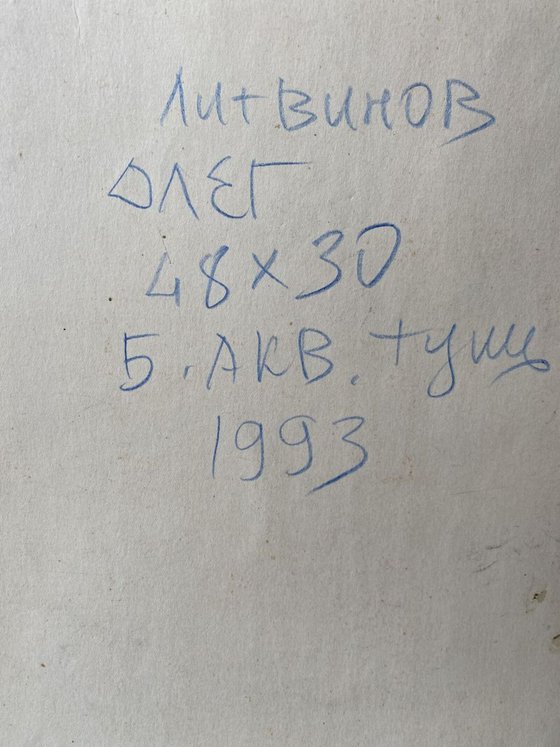 ЛИТВИНОВ
ОЛЕГ
48х30
Б. АКВ. тушь
1993